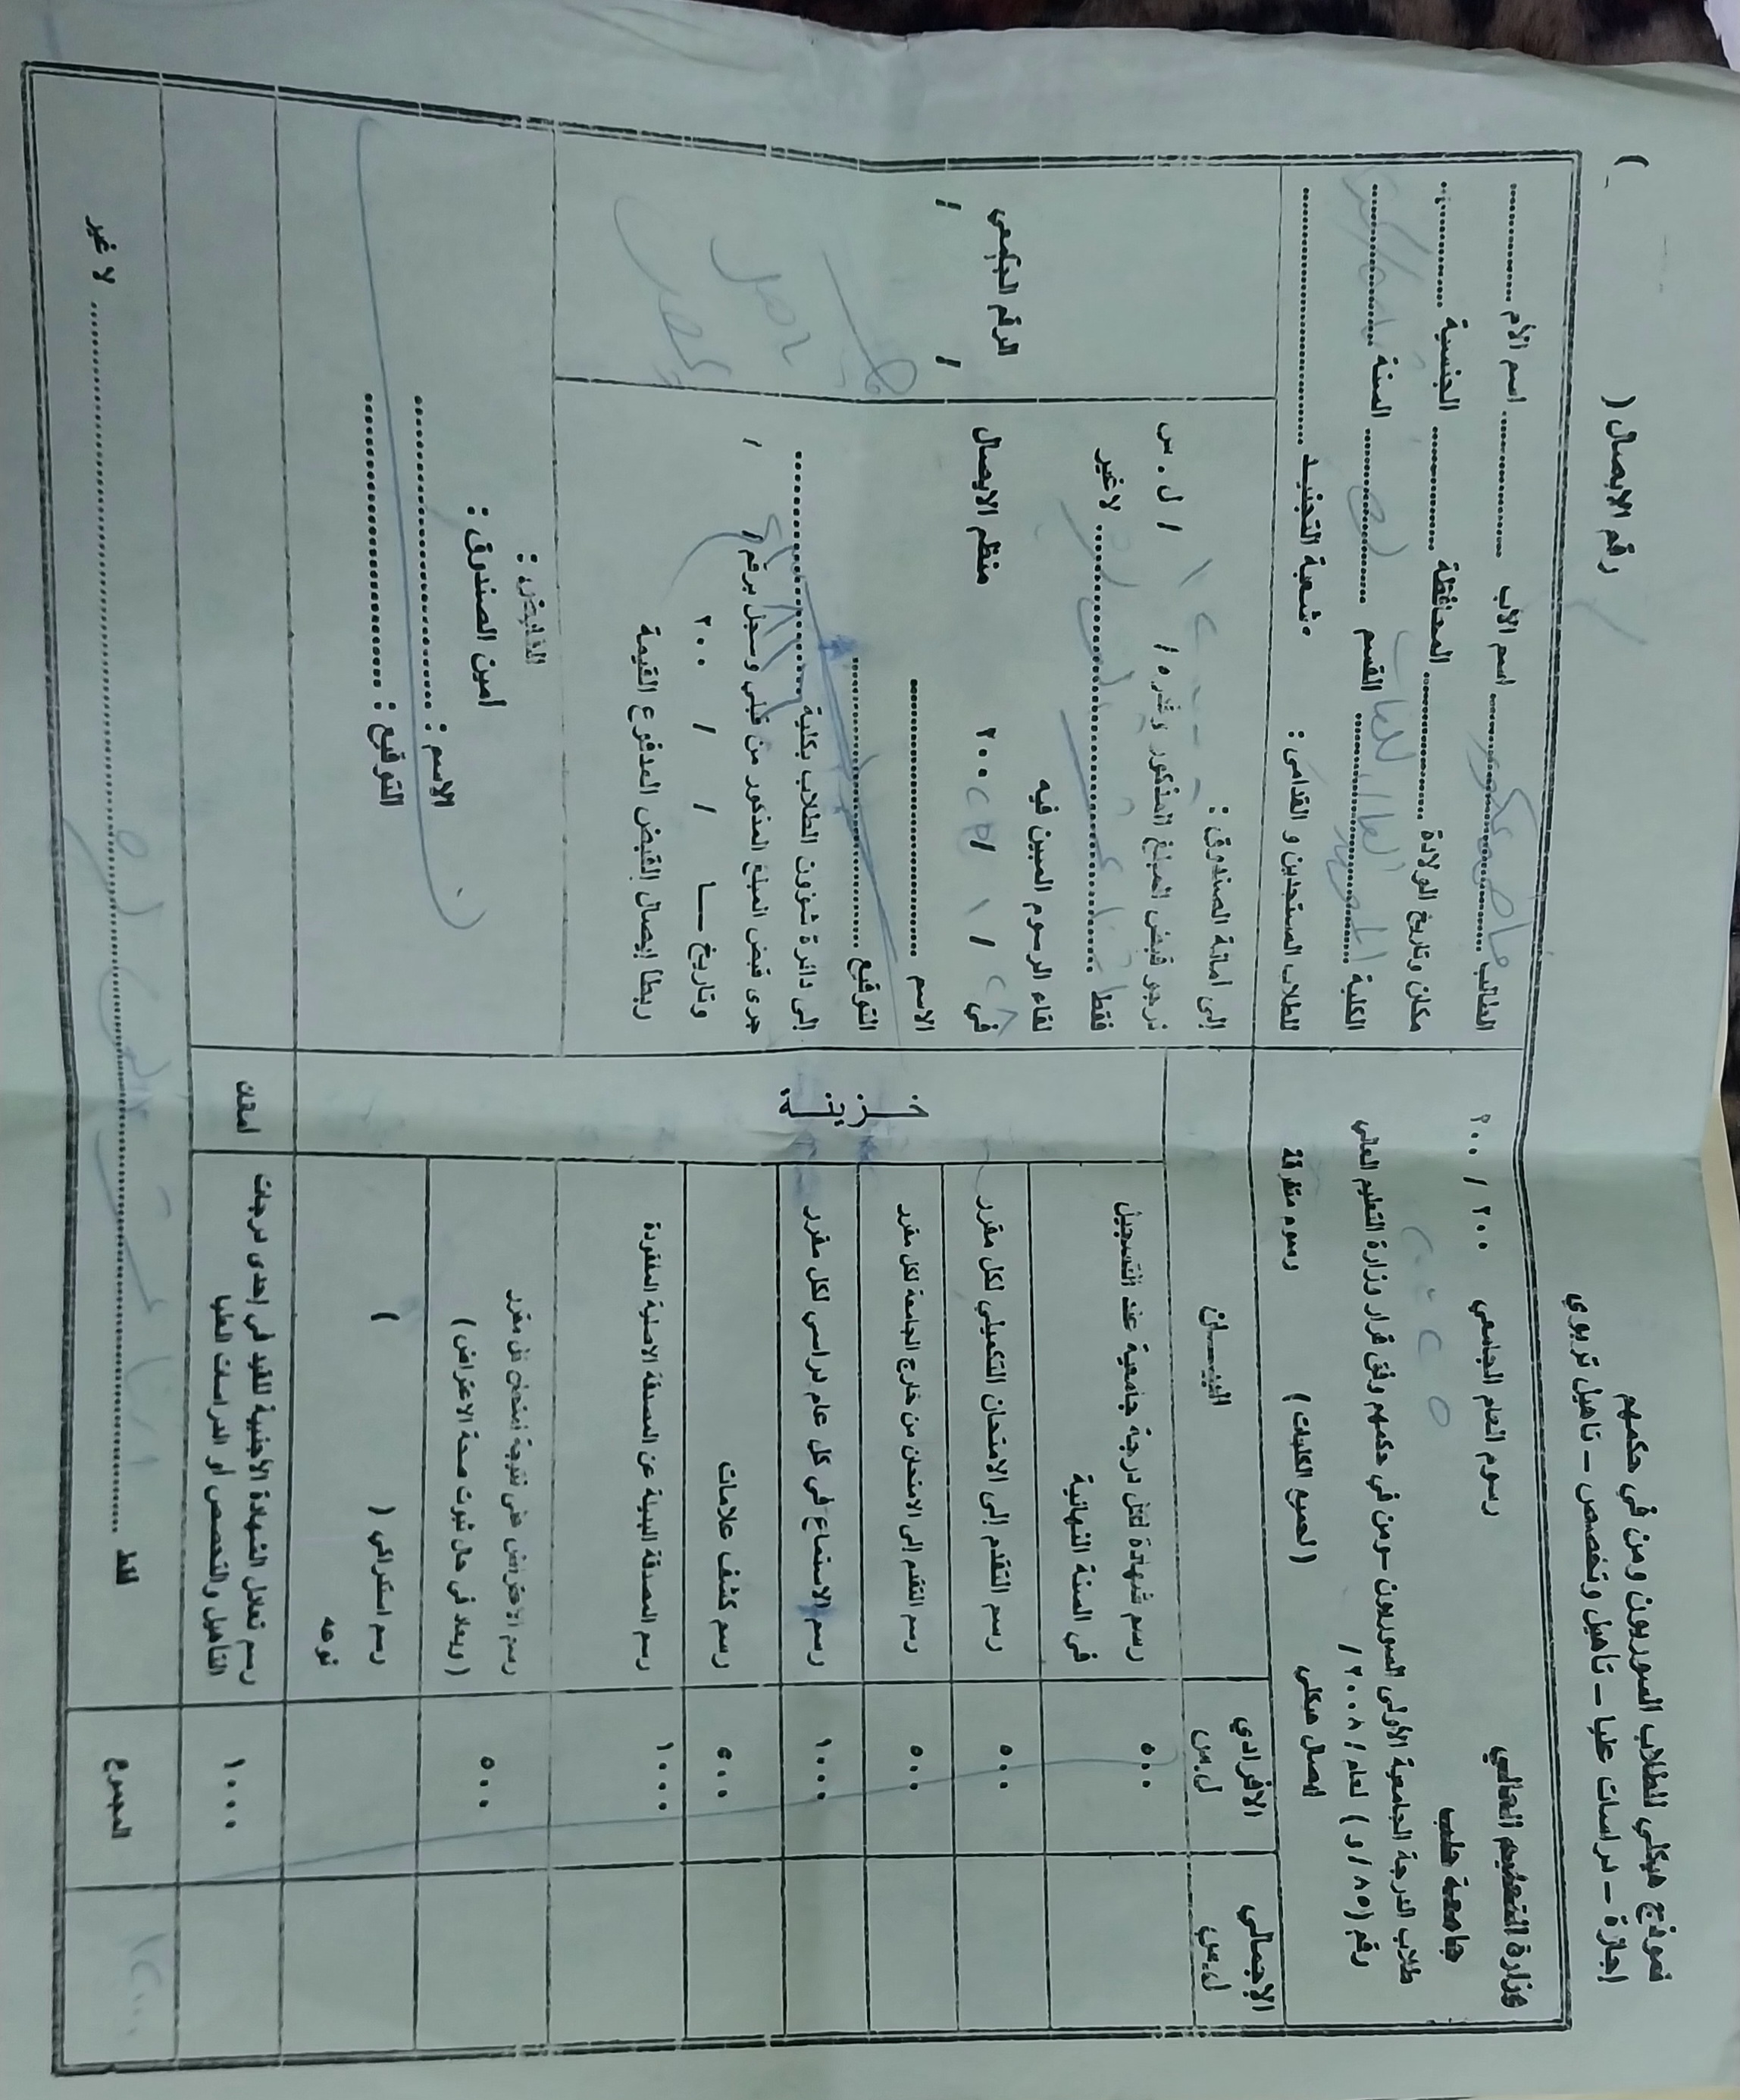 نموذج هيكلي للطلاب السوريون ومن في حكمهم
إجازة – دراسات عليا – تأهيل وتخصص – تأهيل تربوي
رقم الايصال ( )
وزارة التعليم العالي
جامعة حلب
رسوم العام الجامعي ٢٠٠ / ٢٠٠
طلاب الدرجة الجامعية الأولى السوريون - ومن في حكمهم وفق قرار وزارة التعليم العالي
رقم (٨٥ / و ) لعام / ٢٠٠٨ /
ايصال هيكلي (لجميع الكليات ) رسوم متفرقة
الطالب ............ اسم الأب ............ اسم الأم ............
مكان وتاريخ الولادة ............ المحافظة ............ الجنسية ............
الكلية ............ القسم ............ السنة ............
للطلاب المستجدين و القدامى : شعبة التجنيد ............
الإجمالي ل.س
الافرادي ل.س
البيــــان
رسم شهادة لكل درجة جامعية عند التسجيل
في السنة النهائية
٥٠٠
رسم التقدم إلى الامتحان التكميلي لكل مقرر
٥٠٠
رسم التقدم إلى الامتحان من خارج الجامعة لكل مقرر
٥٠٠
رسم الاستماع في كل عام دراسي لكل مقرر
١٠٠٠
رسم كشف علامات
٥٠٠
رسم المصدقة البديلة عن المصدقة الاصلية المفقودة
١٠٠٠
رسم الاعتراض على نتيجة امتحان كل مقرر
( ويعاد في حال ثبوت صحة الاعتراض )
٥٠٠
رسم اشتراكي ( )
نوعه
خزينة
رسم تعادل الشهادة الأجنبية للقيد في إحدى درجات
التأهيل والتخصص أو الدراسات العليا
١٠٠٠
امانات
إلى امانة الصندوق :
نرجو قبض المبلغ المذكور وقدره / / ل . س
فقط ............ لا غير
لقاء الرسوم المبين فيه
في / / ٢٠٠ منظم الايصال
الاسم ............
التوقيع ............
إلى دائرة شؤون الطلاب بكلية ............
جرى قبض المبلغ المذكور من قبلي وسجل برقم / /
وتاريخ / / ٢٠٠
ربطا إيصال القبض المدفوع القيمة
الرقم الجامعي
/ /
القابض :
امين الصندوق :
الاسم : ............
التوقيع : ............
المجموع
فقط ............ لا غير